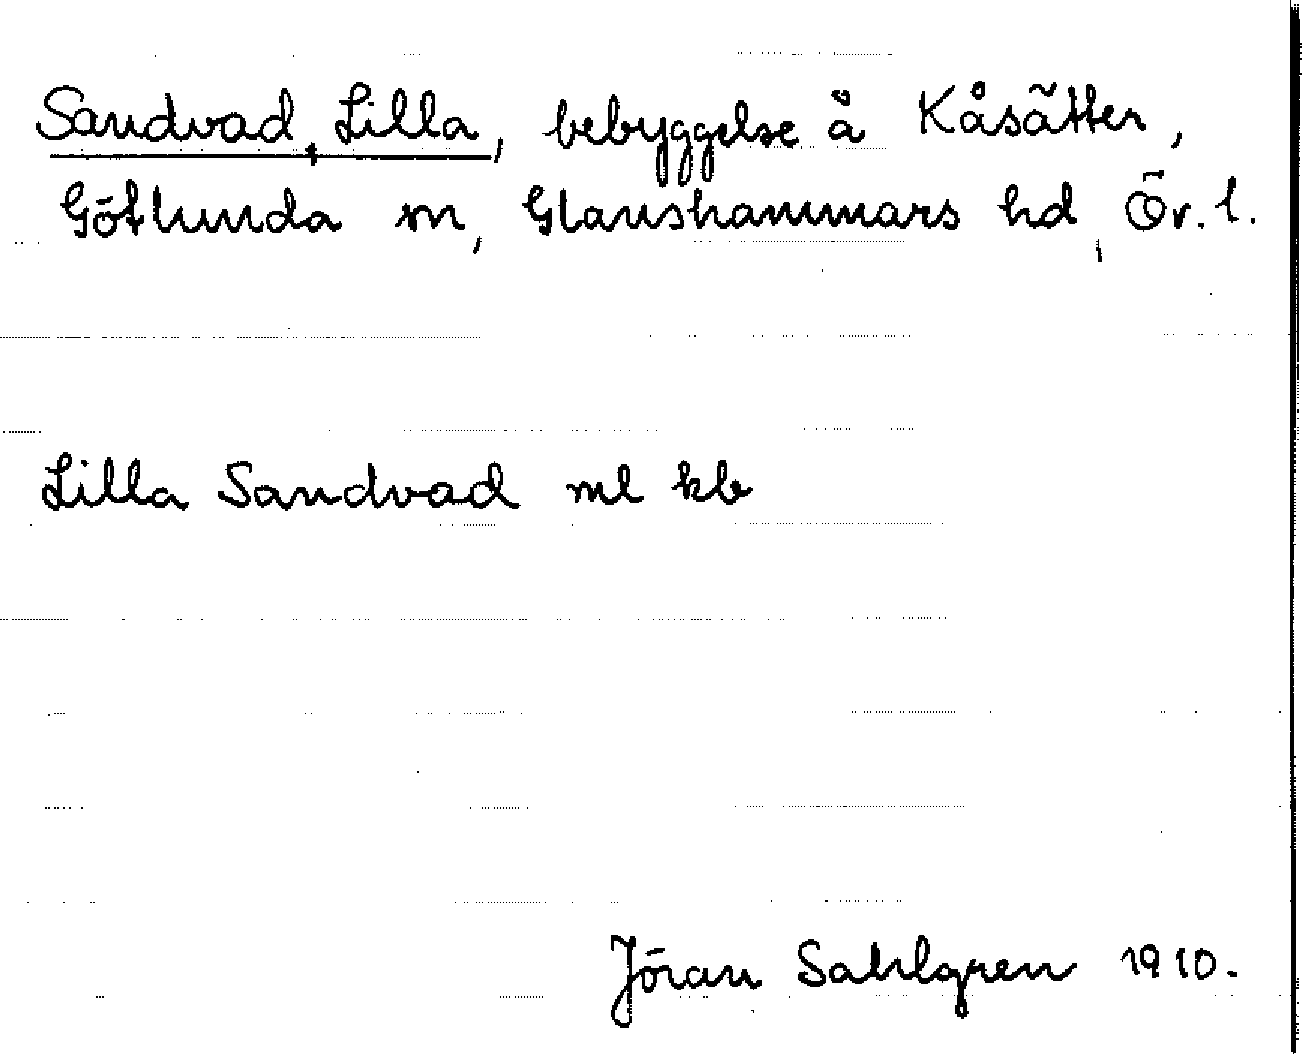 Sandvad, Lilla, bebyggelse å Kåsätter,
Götlunda sn, Glanshammars hd, Ör. l.
Lilla Sandvad ml kb
Jöran Sahlgren 1910.